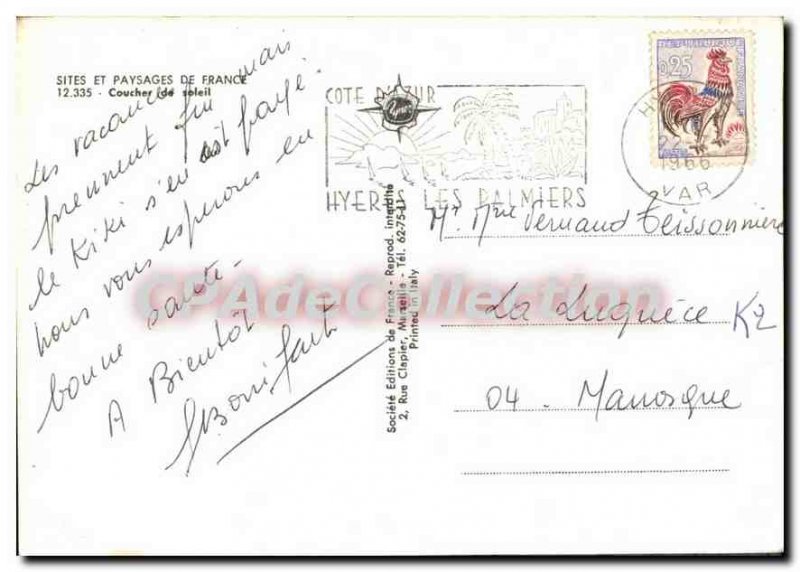 SITES ET PAYSAGES DE FRANCE
12.335 - Coucher de soleil
Les vacances mais
prennent fin
le Kiki s'en est payé.
nous vous esperons en
bonne santé -
A Bientôt
Bonifait
Société Editions de France - Reprod. interdite
2, Rue Clapier, Marseille - Tél. 62-75-11
Printed in Italy
COTE D'AZUR
HYERES LES PALMIERS
0,25
1966
VAR
Mr Mme Fernand Teissonniere
La Luquèce K2
04. Manosque
CPAdeCollection